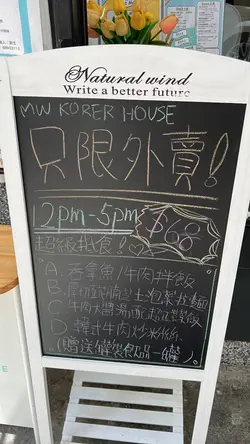 Natural wind
Write a better future
MW KORER HOUSE
只限外賣!
12pm-5pm
$68
超級抵食!
A. 吞拿魚/牛肉拌飯
B. 泡菜拉麵
C. 牛肉大醬湯配紫菜飯
D. 韓式牛肉炒粉絲
(贈送罐裝飲品一罐)